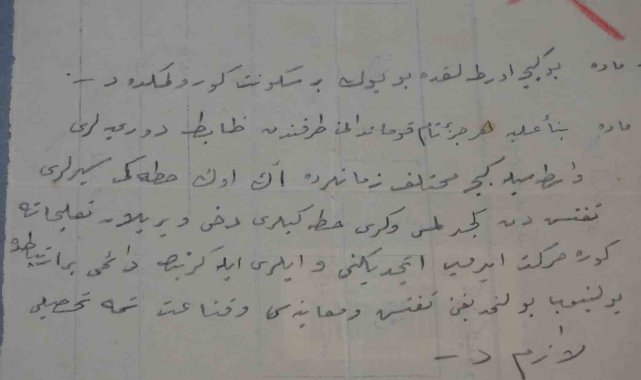 ماده بو كیجه اورطه لقده بویوك بر سكونت كورولمكده در —
ماده بناءً علیه هر جزؤتام قوماندانی طرفندن ضابط دوریه لری
واسطه سیله كیجه مختلف زمانلرده اڭ اوڭ خطده كی سپرلری
تفتیش دن كچیرلمسی وكری خطده كیلری دخی ویریلان تعلیماته
كوره حركت ایدوب ایتمدیكنی و ایلری ایله كریده دائمی بر ارتباطده
بولنوب بولنمدیغنی تفتیش ومعاینه سی وقناعت تامه تحصیلی
لازم در —